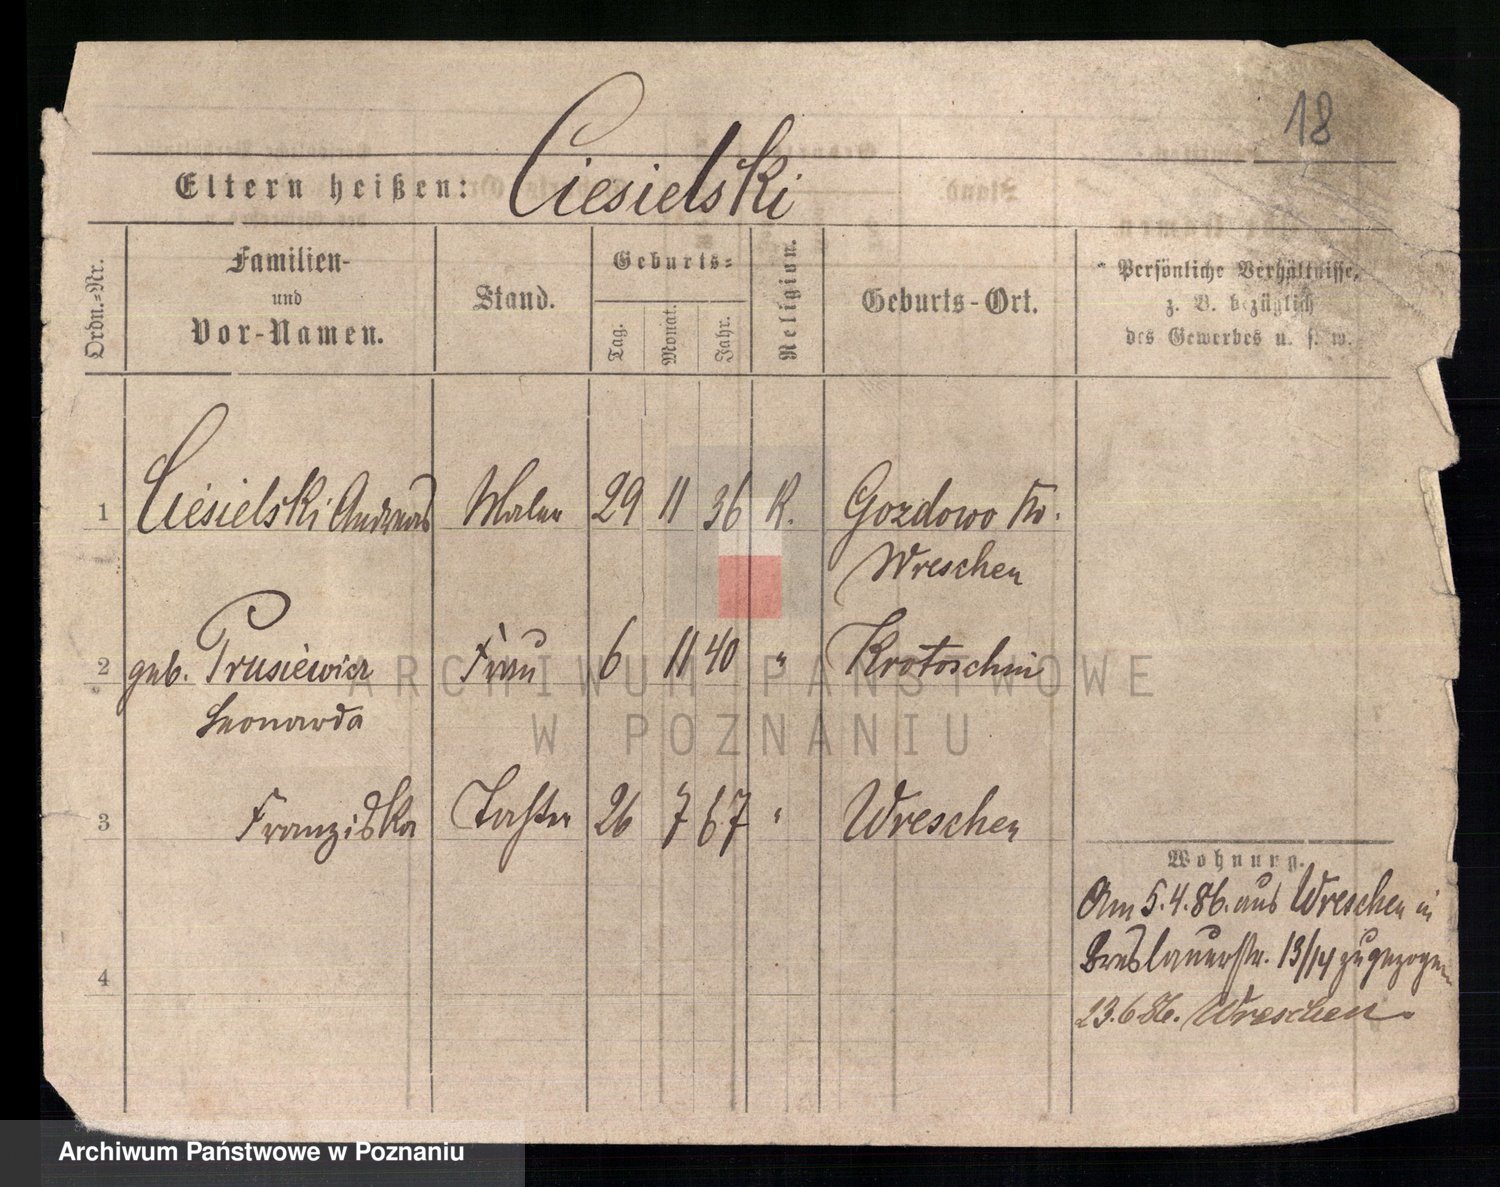 18
Eltern heißen: Ciesielski
Ordn.-Nr.
Familien-
und
Vor-Namen.
Stand.
Geburts-
Tag.
Monat.
Jahr.
Religion.
Geburts-Ort.
Persönliche Verhältnisse,
z. B. bezüglich
des Gewerbes u. s. w.
1 Ciesielski Andreas Maler 29 11 36 K. Gozdowo Kr.
Wreschen
2 geb. Prusiewicz Frau 6 11 40 " Krotoschin
Leonarda
3 Franziska Tochter 26 7 67 " Wreschen
4
Wohnung.
Am 5.4.86. aus Wreschen in
Breslauerstr. 13/14 zugezogen
23.6 86. Wreschen.
ARCHIWUM PAŃSTWOWE
W POZNANIU
Archiwum Państwowe w Poznaniu